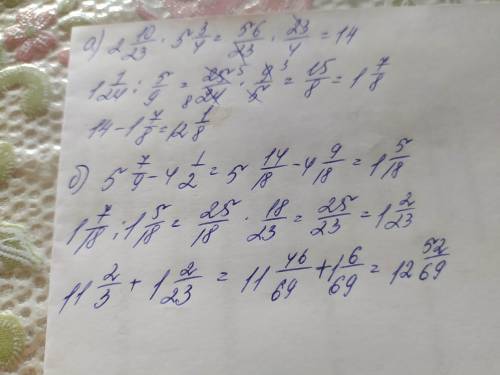 а) 2 10/23 · 5 3/4 = 56/23 · 23/4 = 14
1 1/24 : 5/9 = 25 5/24 8 · 9 3/5 = 15/8 = 1 7/8
14 - 1 7/8 = 12 1/8
б) 5 7/9 - 4 1/2 = 5 14/18 - 4 9/18 = 1 5/18
1 7/18 : 1 5/18 = 25/18 · 18/23 = 25/23 = 1 2/23
11 2/3 + 1 2/23 = 11 46/69 + 1 6/69 = 12 52/69